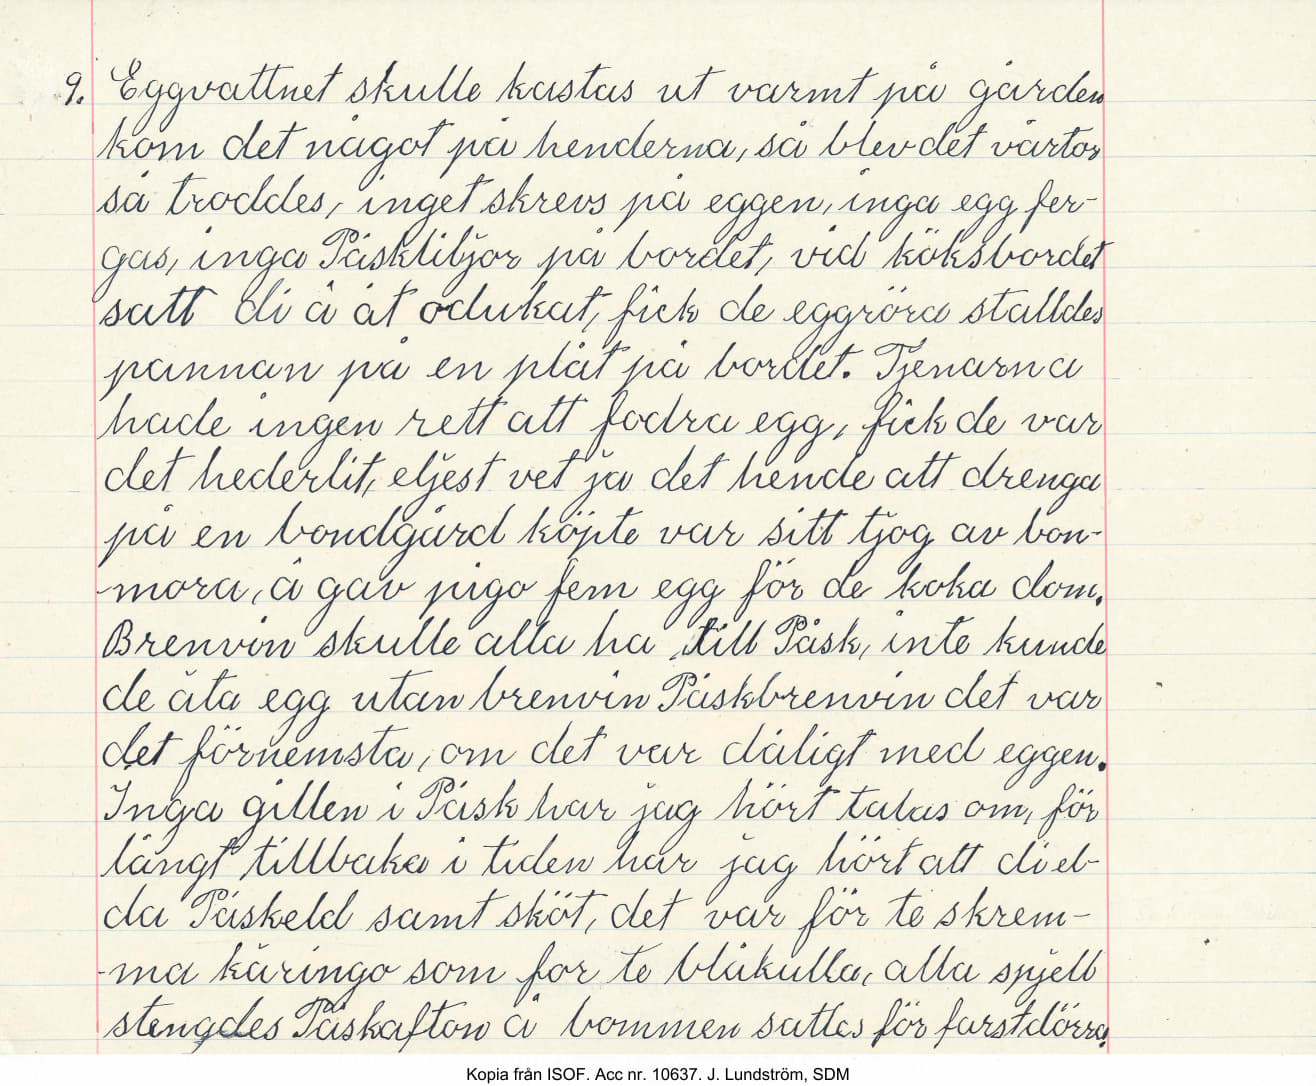 9. Eggvattnet skulle kastas ut varmt på gården
kom det något på henderna, så blev det vårtor
så troddes, inget skrevs på eggen, inga egg fer-
gas, inga Påskliljor på bordet, vid köksbordet
satt di å åt odukat, fick de eggröra stalldes
pannan på en plåt på bordet. Tjenarna
hade ingen rett att fodra egg, fick de var
det hederlit, eljest vet ja det hende att drenga
på en bondgård köpte var sitt tjog av bon-
-mora, å gav pigo fem egg för de koka dom.
Brenvin skulle alla ha till Påsk, inte kunde
de äta egg utan brenvin Påskbrenvin det var
det förnemsta, om det var dåligt med eggen.
Inga gillen i Påsk har jag hört talas om, för
långt tillbaka i tiden har jag hört att di el-
da Påskeld samt sköt, det var för te skrem-
-ma käringo som for te blåkulla, alla spjell
stengdes Påskafton å bommen sattes för farstdörra.
Kopia från ISOF. Acc nr. 10637. J. Lundström, SDM